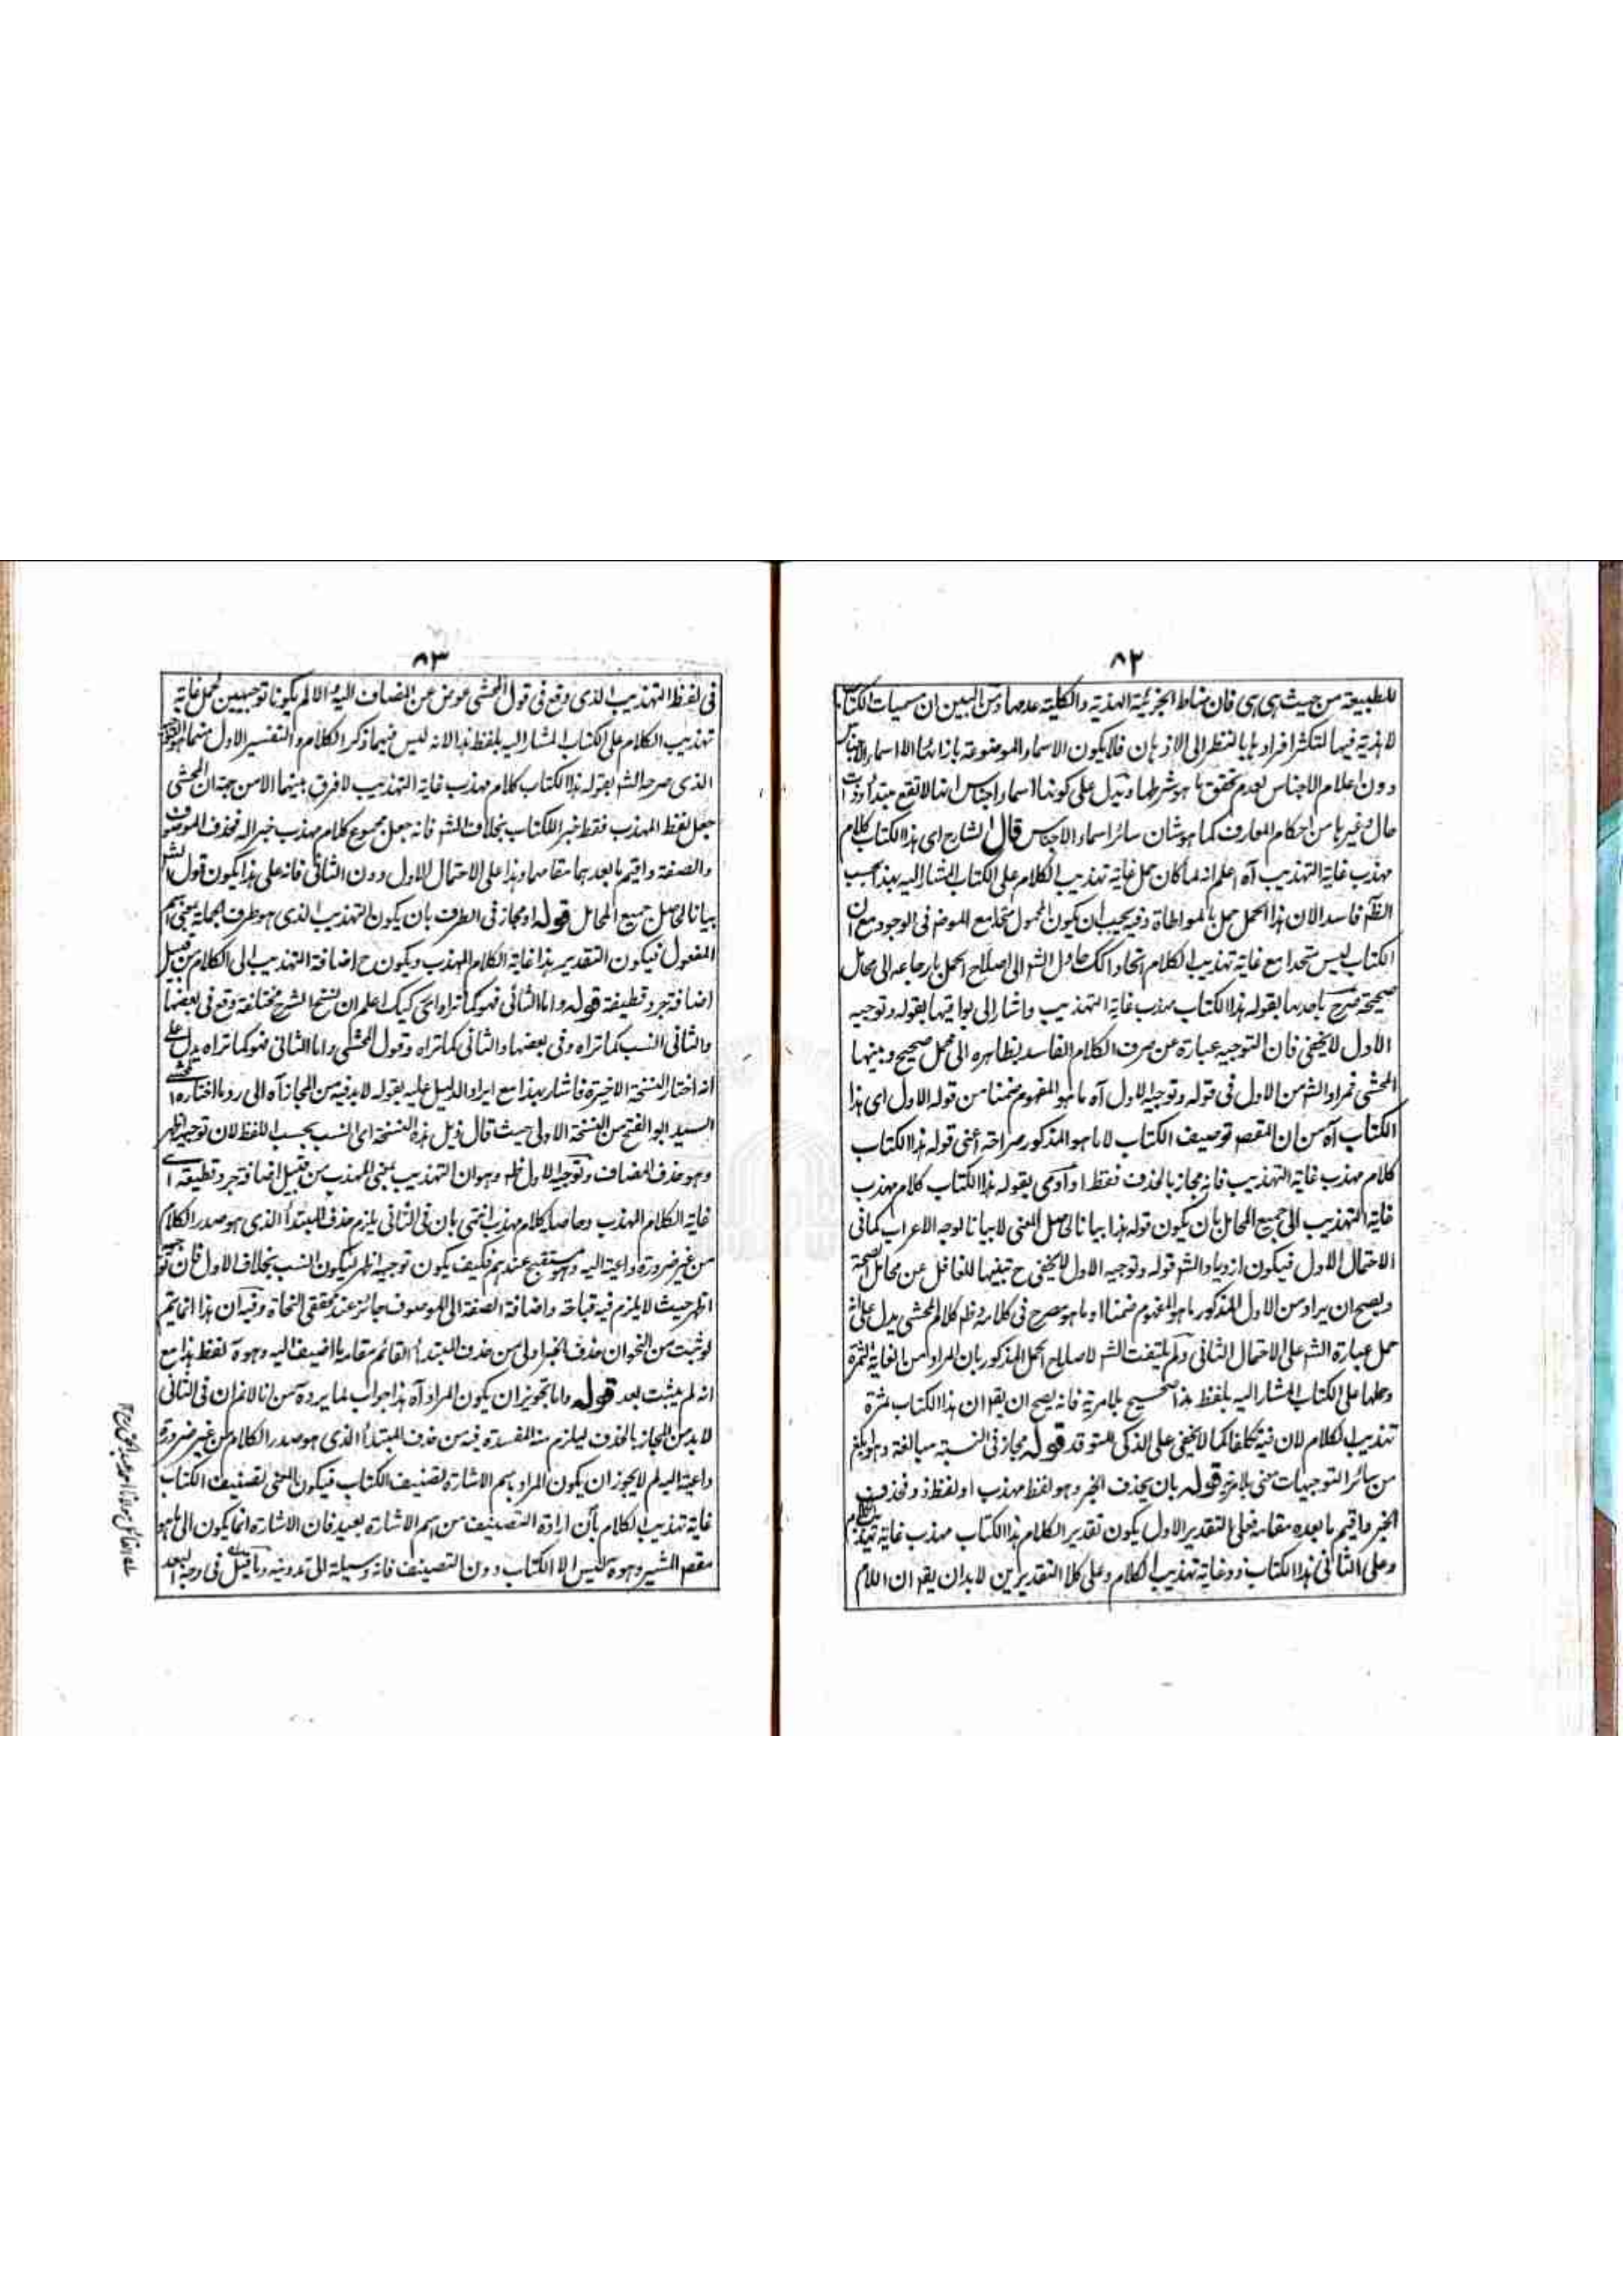 ٨٢
للطبيعة من حيث هي هي فان مناط الجزئية الهذية والكلية عدمها ومن البين ان مسميات الكتاب
لا هذية فيها لتكثر افرادها بالنظر الى الاذهان فلا يكون الاسماء الموضوعة بازائها الا اسماء الاجناس
دون اعلام الاجناس لعدم تحقق ما هو شرطها ويدل على كونها اسماء اجناس انها لا تقع مبتدأ وذات
حال وغيرها من احكام المعارف كما هو شان سائر اسماء الاجناس قال الشارح اى هذا الكتاب كلام
مهذب غاية التهذيب آه اعلم انه لما كان حمل غاية تهذيب الكلام على الكتاب المشار اليه بهذا بحسب
الظم فاسدا لان هذا الحمل حمل بالمواطاة وفيه يجب ان يكون المحمول متحدا مع الموضوع فى الوجود مع ان
الكتاب ليس متحدا مع غاية تهذيب الكلام اتحادا كك حاول الشه الى اصلاح الحمل بارجاعه الى محامل
صحيحة صرح باحدها بقوله هذا الكتاب مهذب غاية التهذيب واشار الى بواقيها بقوله وتوجيه
الاول لا يخفى فان التوجيه عبارة عن صرف الكلام الفاسد بظاهره الى محمل صحيح وبينها
المحشى فمراد الشه من الاول فى قوله وتوجيه الاول آه ما هو المفهوم ضمنا من قوله الاول اى هذا
الكتاب آه من ان المقصم توصيف الكتاب لا ما هو المذكور صراحة اعنى قوله هذا الكتاب
كلام مهذب غاية التهذيب فانه مجاز بالحذف فقط او أومى بقوله هذا الكتاب كلام مهذب
غاية التهذيب الى جميع المحامل بان يكون قوله هذا بيانا لحاصل المعنى لا بيانا لوجه الاعراب كما فى
الاحتمال الاول فيكون ازدياد الشه قوله وتوجيه الاول لا يخفى ح تنبيها للغافل عن محامل الصحة
ويصح ان يراد من الاول المذكور ما هو المفهوم ضمنا او ما هو مصرح فى كلامه وظم كلام المحشى يدل على انه
حمل عبارة الشه على الاحتمال الثانى ولم يلتفت الشه لاصلاح الحمل المذكور بان المراد من الغاية الثمرة
وحملها على الكتاب المشار اليه بلفظ هذا صحيح بلا مرية فانه يصح ان يقم ان هذا الكتاب ثمرة
تهذيب الكلام لان فيه تكلفا كما لا يخفى على الذكى المتوقد قوله مجاز فى النسبة مبالغة وهو ابلغ
من سائر التوجيهات معنى بلا مرية قوله بان يحذف الخبر وهو لفظ مهذب او لفظ ذو فحذف
الخبر واقيم ما بعده مقامه فعلى التقدير الاول يكون تقدير الكلام هذا الكتاب مهذب غاية تهذيب الكلام
وعلى الثانى هذا الكتاب ذو غاية تهذيب الكلام وعلى كلا التقديرين لا بد ان يقم ان اللام
٨٣
فى لفظ التهذيب الذى وقع فى قول المحشى عوض عن المضاف اليه والا لم يكونا توجيهين لحمل غاية
تهذيب الكلام على الكتاب المشار اليه بلفظ هذا لانه ليس فيهما ذكر الكلام والتفسير الاول منهما هو
الذى صرح الشه بقوله هذا الكتاب كلام مهذب غاية التهذيب لا فرق بينهما الا من جهة ان المحشى
جعل لفظ المهذب فقط خبرا للكتاب بخلاف الشه فانه جعل مجموع كلام مهذب خبرا له فحذف الموصوف
والصفة واقيم ما بعدهما مقامهما وهذا على الاحتمال الاول دون الثانى فانه على هذا يكون قول الشه
بيانا لحاصل جميع المحامل قوله او مجاز فى الطرف بان يكون التهذيب الذى هو طرف الجملة بمعنى اسم
المفعول فيكون التقدير هذا غاية الكلام المهذب ويكون ح اضافة التهذيب الى الكلام من قبيل
اضافة جرد قطيفة قوله واما الثانى فهو كما تراه اى ركيك اعلم ان نسخ الشرح مختلفة وقع فى بعضها
والثانى انسب كما تراه وفى بعضها والثانى كما تراه وقول المحشى واما الثانى فهو كما تراه يدل على
انه اختار النسخة الاخيرة فاشار بهذا مع ايراد الدليل عليه بقوله لا بد فيه من المجاز آه الى رد ما اختاره المحشى
السيد ابو الفتح من النسخة الاولى حيث قال ذيل هذه النسخة اى انسب بحسب اللفظ لان توجيهه اظهر
وهو حذف المضاف وتوجيه الاول ظم وهو ان التهذيب بمعنى المهذب من قبيل اضافة جرد قطيفة اى
غاية الكلام المهذب وحاصله كلام مهذب انتهى بان فى الثانى يلزم حذف المبتدأ الذى هو صدر الكلام
من غير ضرورة داعية اليه وهو مستقبح عندهم فكيف يكون توجيهه اظهر ليكون انسب بخلاف الاول فان توجيهه
اظهر حيث لا يلزم فيه قباحة واضافة الصفة الى الموصوف جائز عند محققى النحاة وفيه ان هذا انما يتم
لو ثبت من النحو ان حذف الخبر اولى من حذف المبتدأ القائم مقامه ما اضيف اليه وهو ة لفظ هذا مع
انه لم يثبت بعد قوله واما تجويز ان يكون المراد آه هذا جواب لما يرد ة من انا لا نم ان فى الثانى
لا بد من المجاز بالحذف ليلزم منه المفسدة فيه من حذف المبتدأ الذى هو صدر الكلام من غير ضرورة
داعية اليه لم لا يجوز ان يكون المراد باسم الاشارة تصنيف الكتاب فيكون المعنى تصنيف الكتاب
غاية تهذيب الكلام بان ارادة التصنيف من اسم الاشارة بعيد فان الاشارة انما يكون الى ما هو
مقصم المشير وهو ة ليس الا الكتاب دون التصنيف فانه وسيلة الى تدوينه وما قيل فى وجه البعد